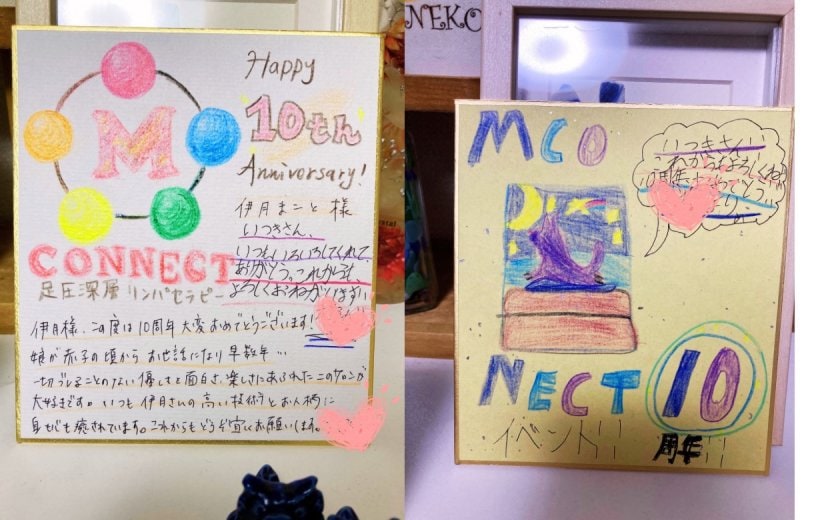 M
CONNECT
足圧深層リンパセラピー
Happy
10th
Anniversary!
伊月まこと様
いつきさん、
いつもいろいろしてくれて、
ありがとう。これからも、
よろしくおねがいします!
伊月様、この度は10周年大変おめでとうございます!
娘が赤子の頃からお世話になり早数年…
一切ブレることのない優しさと面白さ、楽しさにあふれたこのサロンが
大好きです。いつも伊月さんの高い技術とお人柄に
身も心も癒されています。これからもどうぞ宜しくお願いします。
NEKO
MCO
NECT
10
周年!!
イベント!!
いつきさん!!
これからもよろしくね!
10周年おめでとう